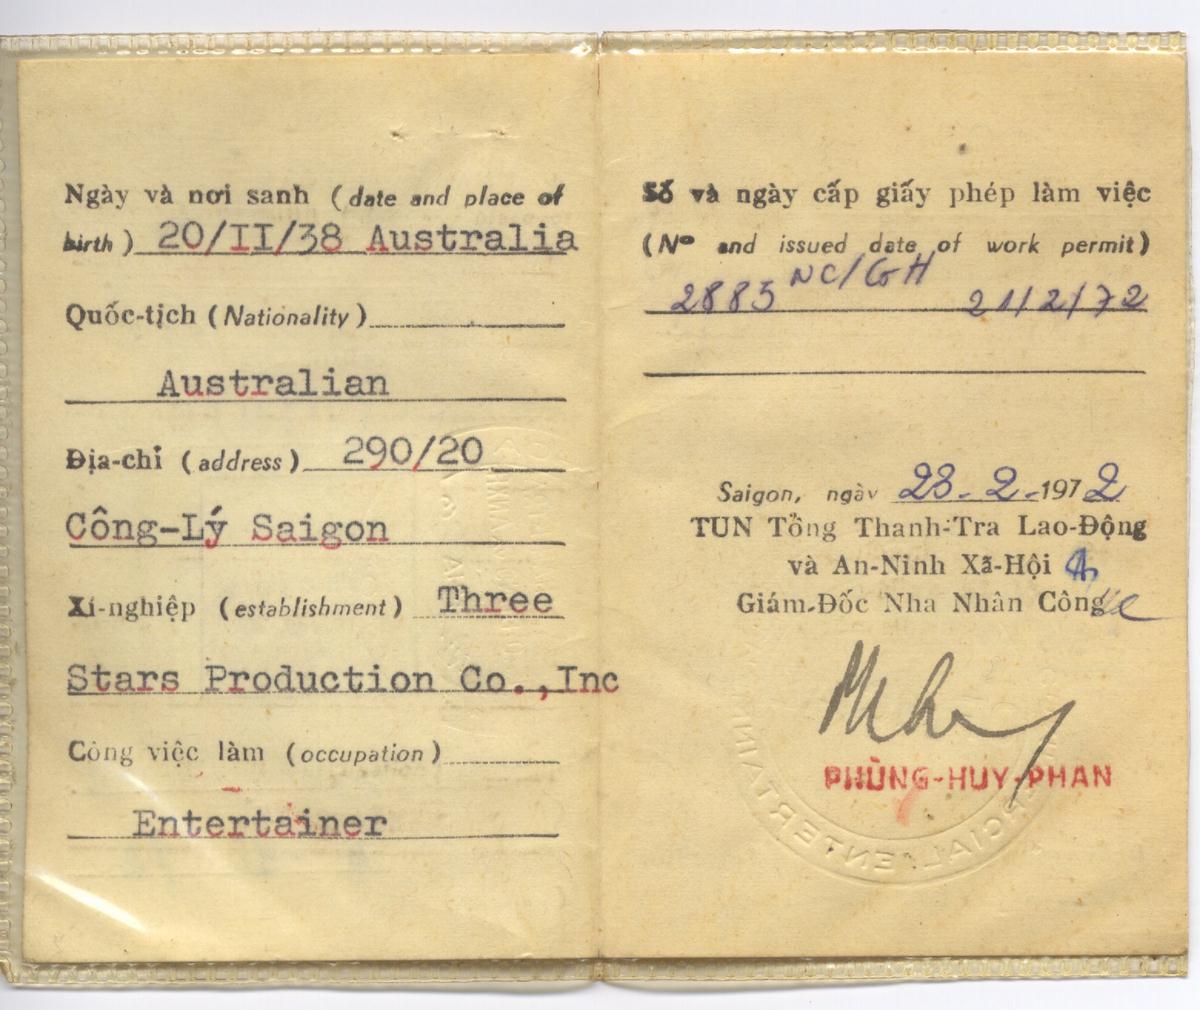 Ngày và nơi sanh (date and place of
birth) 20/II/38 Australia
Quốc-tịch (Nationality)
Australian
Địa-chỉ (address) 290/20
Công-Lý Saigon
Xí-nghiệp (establishment) Three
Stars Production Co.,Inc
Công việc làm (occupation)
Entertainer
Số và ngày cấp giấy phép làm việc
(Nº and issued date of work permit)
2883 NC/GH 21/2/72
Saigon, ngày 23-2-1972
TUN Tổng Thanh-Tra Lao-Động
và An-Ninh Xã-Hội
Giám-Đốc Nha Nhân Công
PHÙNG-HUY-PHAN